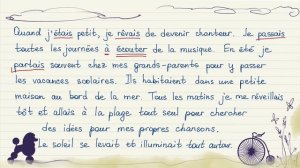 Quand j'étais petit, je rêvais de devenir chanteur. Je passais
toutes les journées à écouter de la musique. En été je
partais souvent chez mes grands-parents pour y passer
les vacances scolaires. Ils habitaient dans une petite
maison au bord de la mer. Tous les matins je me réveillais
tôt et allais à la plage tout seul pour chercher
des idées pour mes propres chansons.
Le soleil se levait et illuminait tout autour.